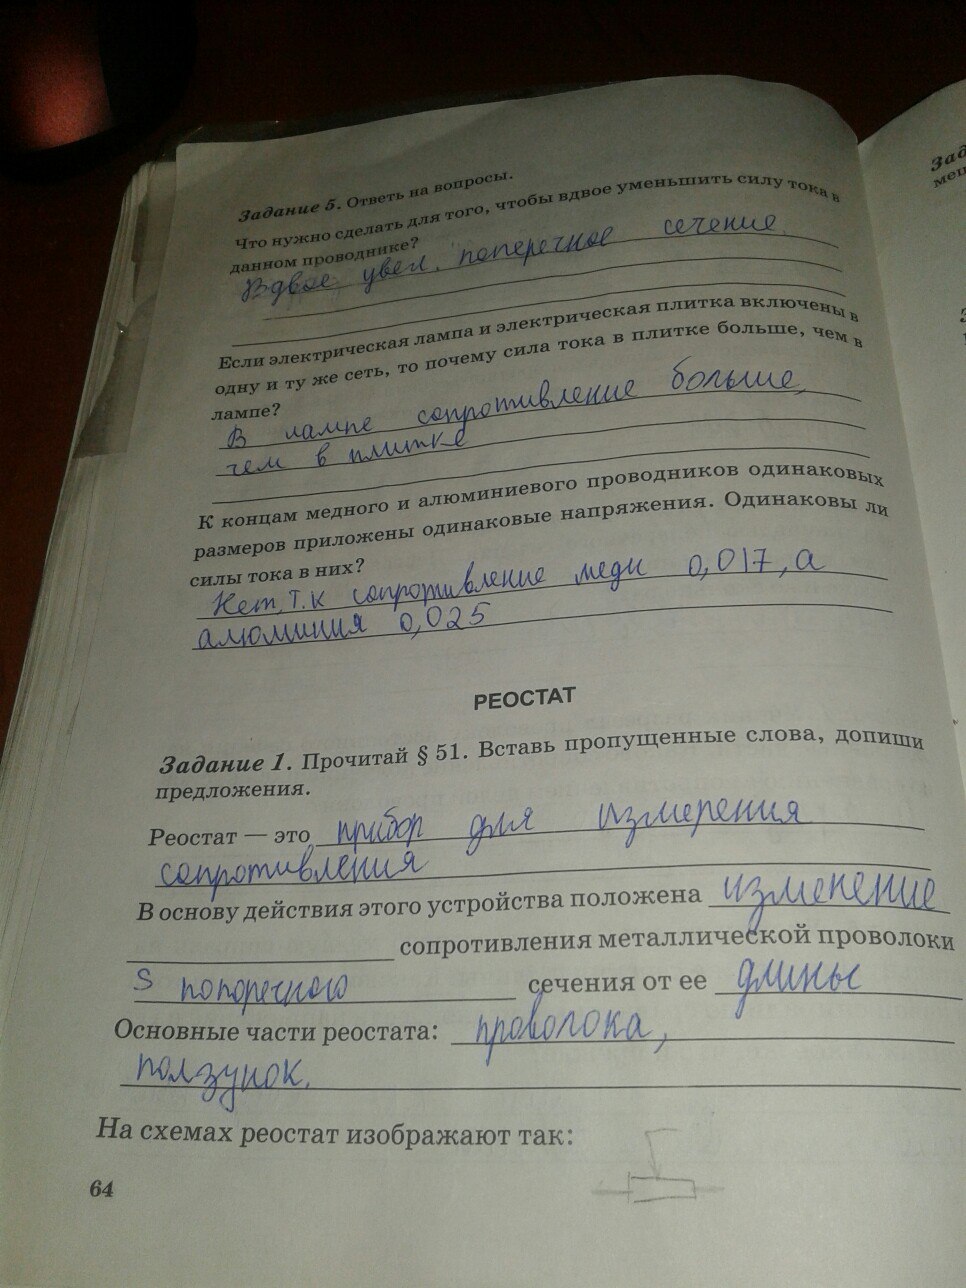 Задание 5. Ответь на вопросы.
Что нужно сделать для того, чтобы вдвое уменьшить силу тока в
данном проводнике?
Вдвое увел. поперечное сечение.
Если электрическая лампа и электрическая плитка включены в
одну и ту же сеть, то почему сила тока в плитке больше, чем в
лампе?
В лампе сопротивление больше,
чем в плитке
К концам медного и алюминиевого проводников одинаковых
размеров приложены одинаковые напряжения. Одинаковы ли
силы тока в них?
Нет, т.к сопротивление меди 0,017, а
алюминия 0,025
РЕОСТАТ
Задание 1. Прочитай § 51. Вставь пропущенные слова, допиши
предложения.
Реостат — это прибор для измерения
сопротивления
В основу действия этого устройства положена изменение
сопротивления металлической проволоки
S попоречного сечения от ее длины
Основные части реостата: проволока,
ползунок.
На схемах реостат изображают так:
64
Зад
мещ